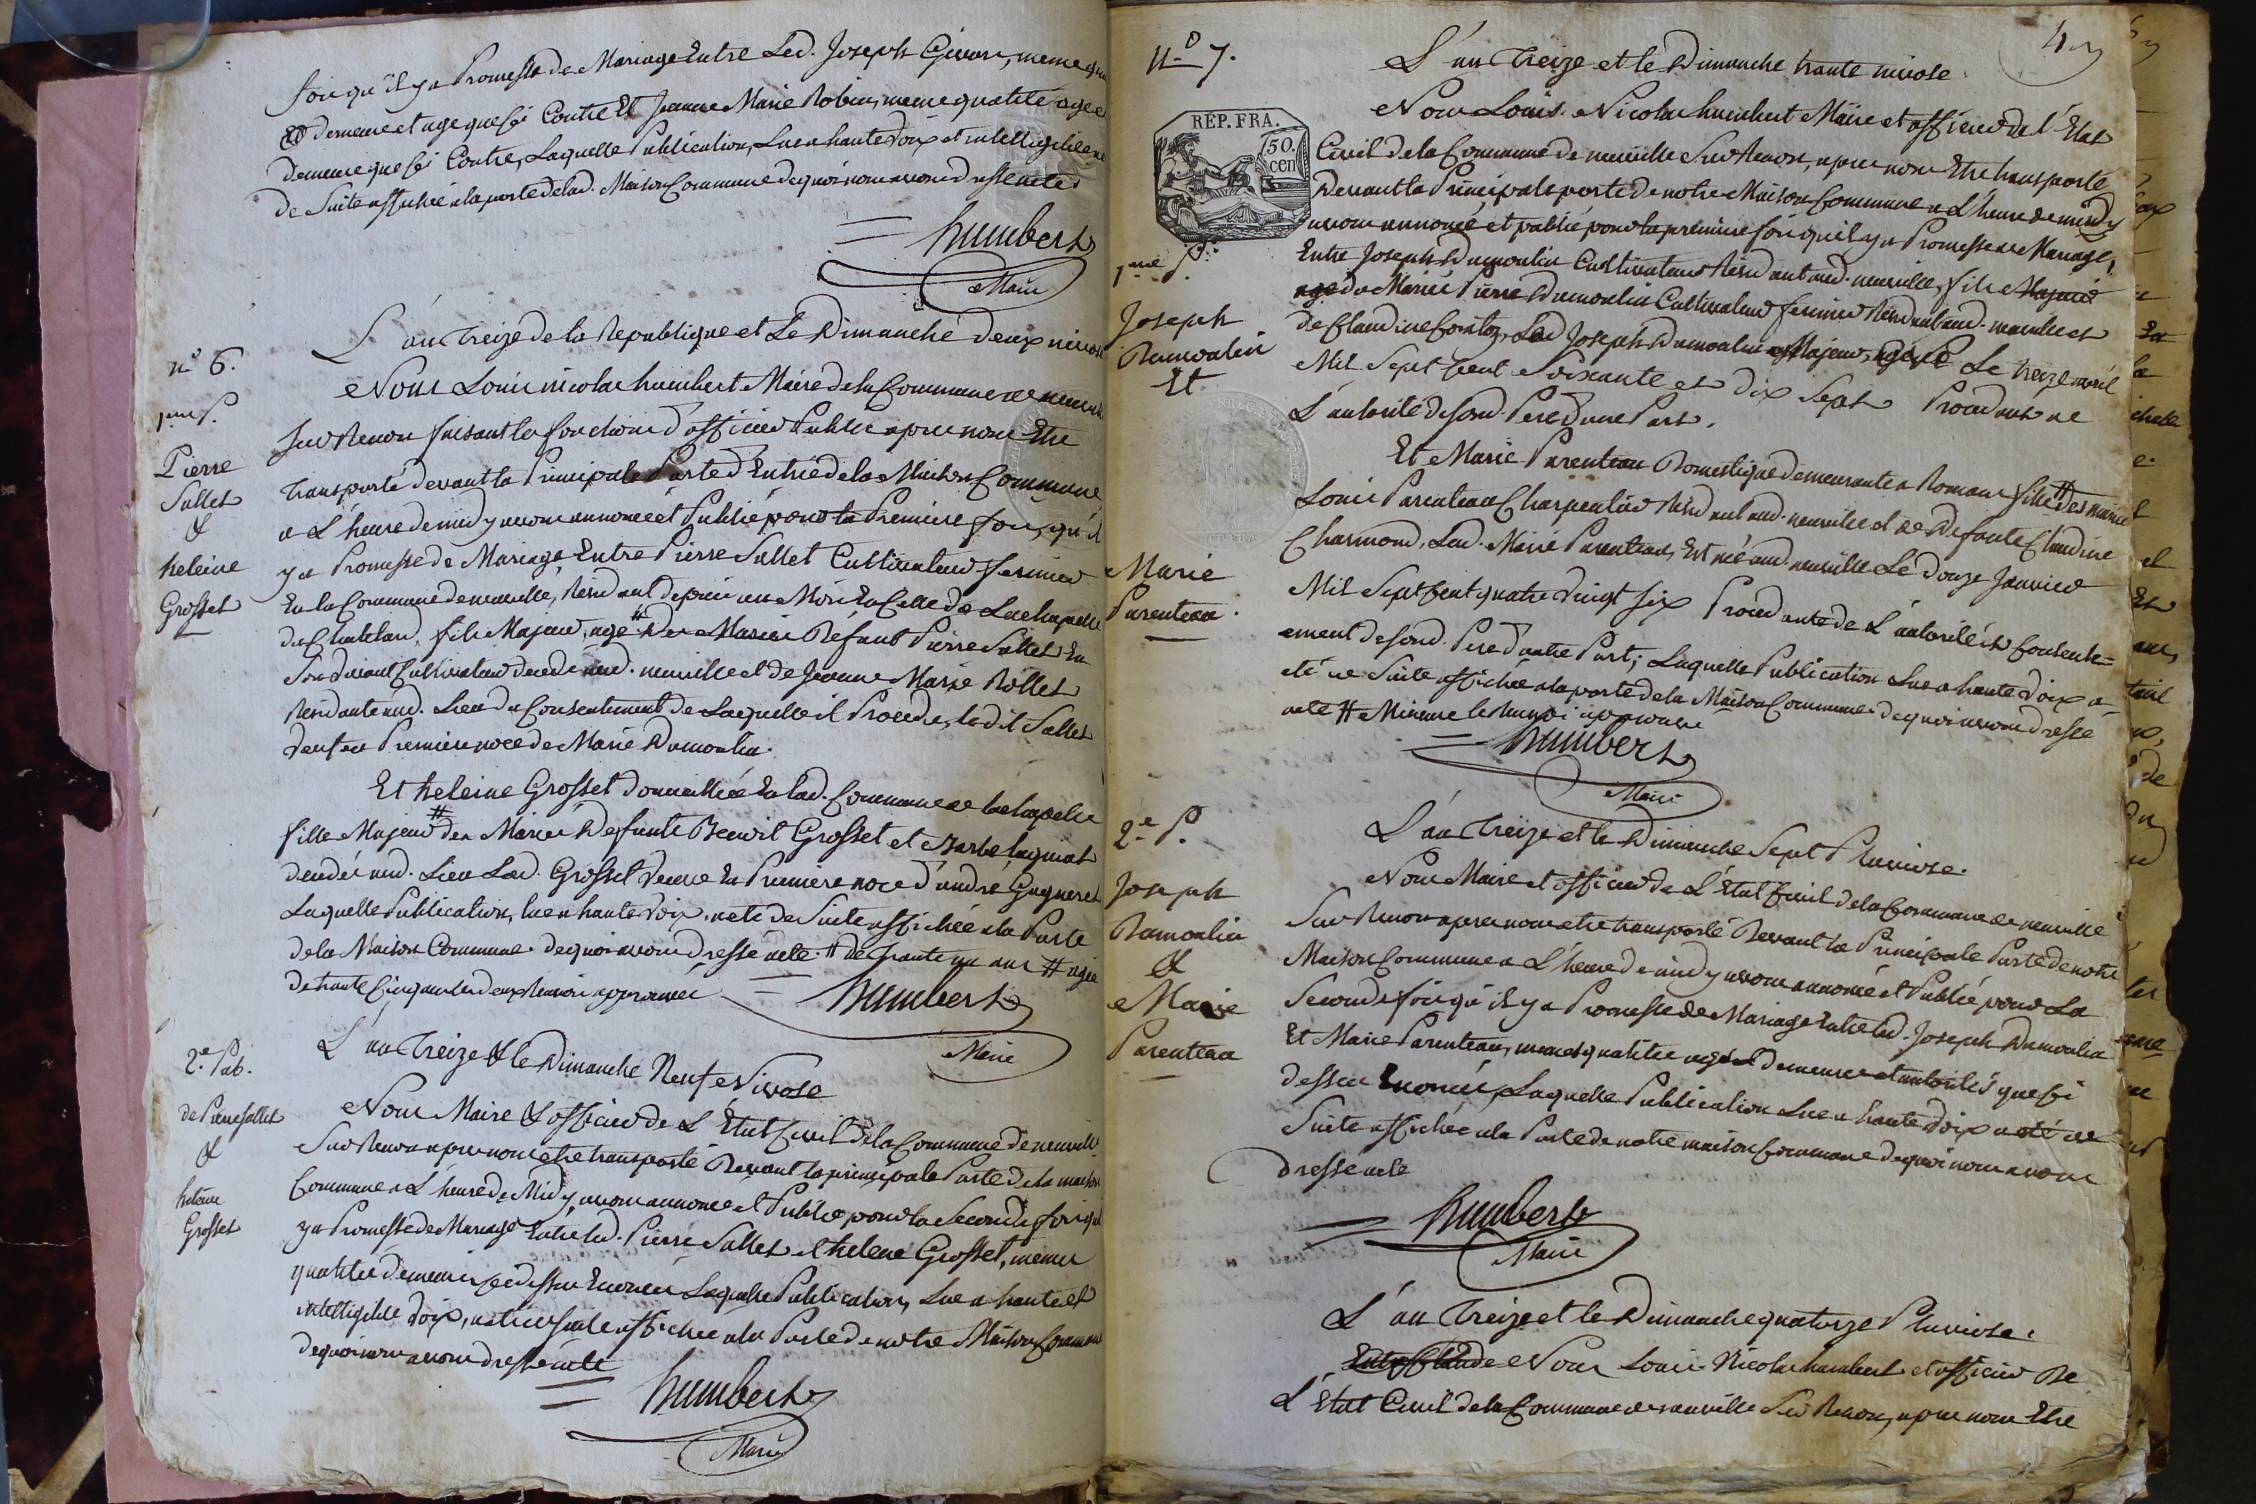 fois qu'il y a Promesse de Mariage Entre Led. Joseph
demeure et age que ci Contre Et Jeanne Marie Robin, meme qualité, age et
demeure que ci Contre, Laquelle Publication, Lue a haute voix et intelligible
de Suite affichée a la porte de lad. Maison Commune de quoi nous avons dressé acte
humbert
Maire
n° 6.
L'an Treize de la Republique et Le Dimanche deux nivose
1ere P.
Pierre
Sallet
&
heleine
Grosset
Nous Louis nicolas humbert Maire de la Commune de
Sur Renon faisant la fonction d'officier Public apres nous Etre
transporté devant la Principale Porte d'Entrée de la Maison Commune
a L'heure de midy avons annoncé et Publié pour la Premiere fois, qu'il
y a Promesse de Mariage Entre Pierre Sallet Cultivateur fermier
En la Commune de neuville, Residant depuis un Mois En Celle de Lachapelle
du Chatelard, fils Majeur, age # Des Mariés Defunt Pierre Sallet En
Son vivant Cultivateur decedé aud. neuville et de Jeanne Marie Rollet
Residante aud. Lieu du Consentement de Laquelle il Procede, ledit Sallet
veuf en Premiere noce de Marie Dumoulin.
Et heleine Grosset domiciliée En lad. Commune de lachapelle
fille Majeur # des Mariés Defunts Benoit Grosset et
decedés aud. Lieu Lad. Grosset veuve En Premiere noce d'andré
Laquelle Publication, lue a haute voix, a eté de Suite affichée a la Porte
de la Maison Commune de quoi avons dressé acte # de trente un ans # agée
de trente Cinq ans les deux Renvois approuvés
humbert
Maire
2.e Pub.
de Pierre Sallet
&
heleine
Grosset
L'an Treize & le Dimanche Neuf Nivose
Nous Maire & officier de L'Etat Civil de la Commune de neuville
Sur Renon apres nous etre transporté Devant la principale Porte de la maison
Commune a L'heure de Midy avons annoncé et Publié pour la Seconde fois qu'il
y a Promesse de Mariage Entre led. Pierre Sallet et helene Grosset, memes
qualités demeures que dessus Enoncés Laquelle Publication, Lue a haute et
intelligible voix, a eté de suite affichée a la Porte de notre Maison Commune
de quoi nous avons dressé acte
humbert
Maire
4
N° 7.
L'an Treize et le Dimanche trante nivose.
REP. FRA.
50.
cen
Nous Louis Nicolas humbert Maire et officier de l'Etat
Civil de la Commune de neuville Sur Renon, apres nous Etre transporté
Devant la Principale porte de notre Maison Commune a L'heure de midy
avons annoncé et publié pour la premiere fois qu'il y a Promesse de Mariage,
1ere P.
Joseph
Dumoulin
Et
Marie
Parenteau
Entre Joseph Dumoulin Cultivateur Residant aud. neuville, fils Majeur
age de Mariés Pierre Dumoulin Cultivateur fermier Residant aud. neuville et
de Claudine, Led Joseph Dumoulin Majeur, Le treize avril
Mil Sept Cent Soixante et dix Sept Procedant de
L'autorité de sond. Pere d'une Part.
Et Marie Parenteau Domestique demeurante a Romans fille # des mariés
Louis Parenteau Charpentier Residant aud. neuville et de Defunte Claudine
Charmond, Lad. Marie Parenteau, Est née aud. neuville Le douze Janvier
Mil Sept Cent quatre vingt Six Procedante de L'autorité et Consente=
ement de sond. Pere d'autre Part; Laquelle Publication Lue a haute voix a
eté de Suite affichée a la porte de la Maison Commune de quoi avons dressé
acte # Mineure le Renvoi approuvé
humbert
Maire
2.e P.
Joseph
Dumoulin
&
Marie
Parenteau
L'an Treize et le Dimanche Sept Pluviose.
Nous Maire et officier de L'Etat Civil de la Commune de neuville
Sur Renon apres nous etre transporté Devant la Principale Porte de notre
Maison Commune a L'heure de midy avons annoncé et Publié pour La
Seconde fois qu'il y a Promesse de Mariage Entre led. Joseph Dumoulin
Et Marie Parenteau, memes qualités ages et demeures et autorités que ci
dessus Enoncés, Laquelle Publication Lue a haute voix a eté de
Suite affichée a la Porte de notre maison Commune de quoi nous avons
dressé acte
humbert
Maire
L'an Treize et le Dimanche quatorze Pluviose.
Entre Claude Nous Louis Nicolas humbert et officier De
L'Etat Civil de la Commune de neuville Sur Renon, apres nous Etre